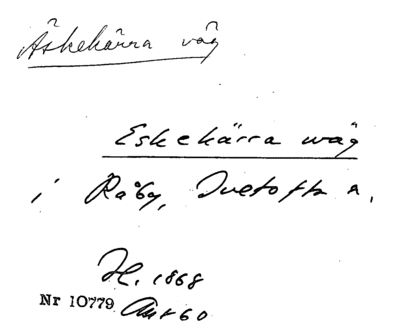 Äskekärra väg
Eskekärra wäg
i Råby, Ivetofta s.
H. 1868
Nr 10779